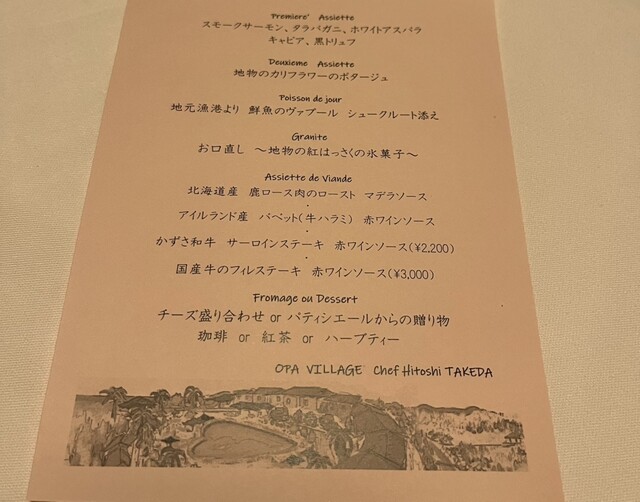 Premiere' Assiette
スモークサーモン、タラバガニ、ホワイトアスパラ
キャビア、黒トリュフ
Deuxieme Assiette
地物のカリフラワーのポタージュ
Poisson de jour
地元漁港より 鮮魚のヴァプール シュークルート添え
Granite
お口直し ～地物の紅はっさくの氷菓子～
Assiette de Viande
北海道産 鹿ロース肉のロースト マデラソース
・
アイルランド産 バベット(牛ハラミ) 赤ワインソース
・
かずさ和牛 サーロインステーキ 赤ワインソース(¥2,200)
・
国産牛のフィレステーキ 赤ワインソース(¥3,000)
Fromage ou Dessert
チーズ盛り合わせ or パティシエールからの贈り物
珈琲 or 紅茶 or ハーブティー
OPA VILLAGE Chef Hitoshi TAKEDA